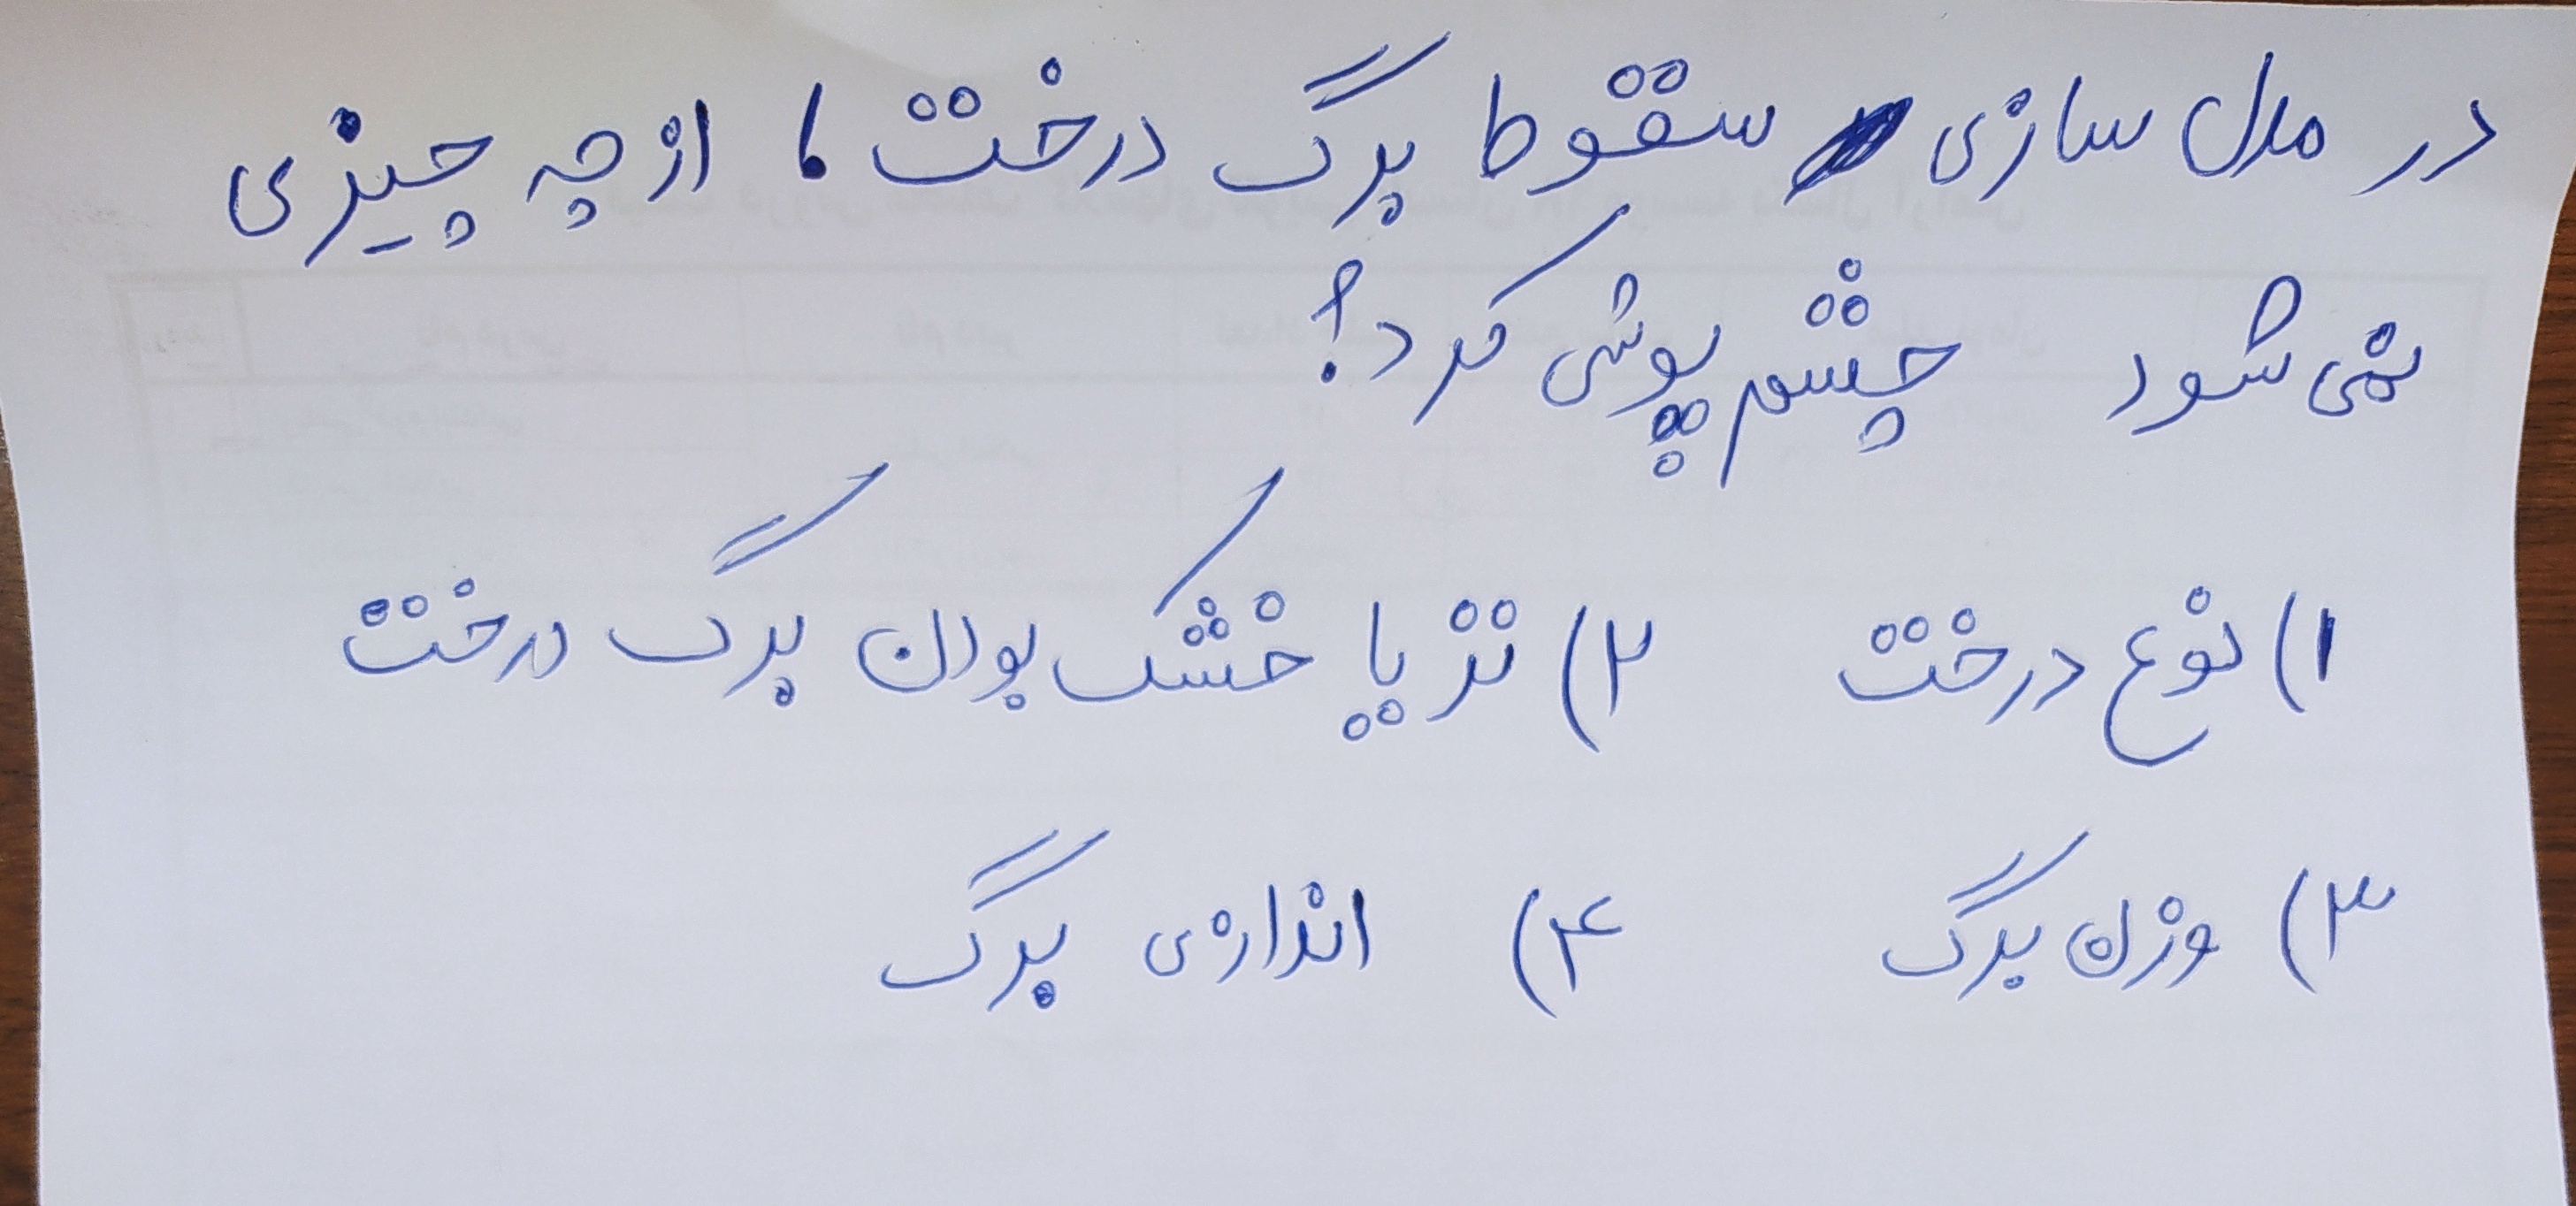 در مدل سازی سقوط برگ درخت، از چه چیزی
نمی شود چشم پوشی کرد؟
۱) نوع درخت ۲) تر یا خشک بودن برگ درخت
۳) وزن برگ ۴) اندازه‌ی برگ